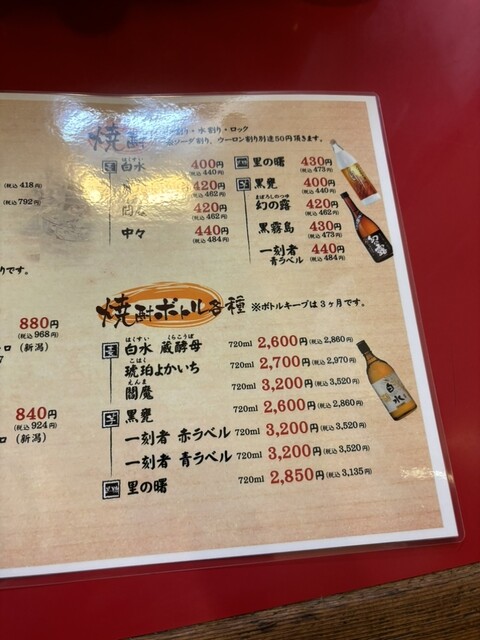 (税込 418円)
(税込 792円)
りです。
880円
(税込 968円)
ロ (新潟)
840円
(税込 924円)
ロ (新潟)
焼酎
割り・水割り・ロック
ソーダ割り、ウーロン割り別途50円頂きます。
麦 はくすい
白水 400円
(税込 440円)
420円
(税込 462円)
420円
(税込 462円)
中々 440円
(税込 484円)
里の曙 430円
(税込 473円)
芋 黒甕 400円
(税込 440円)
まぼろしのつゆ
幻の露 420円
(税込 462円)
黒霧島 430円
(税込 473円)
一刻者 440円
青ラベル (税込 484円)
焼酎ボトル各種 ※ボトルキープは3ヶ月です。
はくすい くらこうぼ
麦 白水 蔵酵母 720ml 2,600円 (税込 2,860円)
こはく
琥珀よかいち 720ml 2,700円 (税込 2,970円)
えんま
閻魔 720ml 3,200円 (税込 3,520円)
芋 黒甕 720ml 2,600円 (税込 2,860円)
一刻者 赤ラベル 720ml 3,200円 (税込 3,520円)
一刻者 青ラベル 720ml 3,200円 (税込 3,520円)
里の曙 720ml 2,850円 (税込 3,135円)
白水